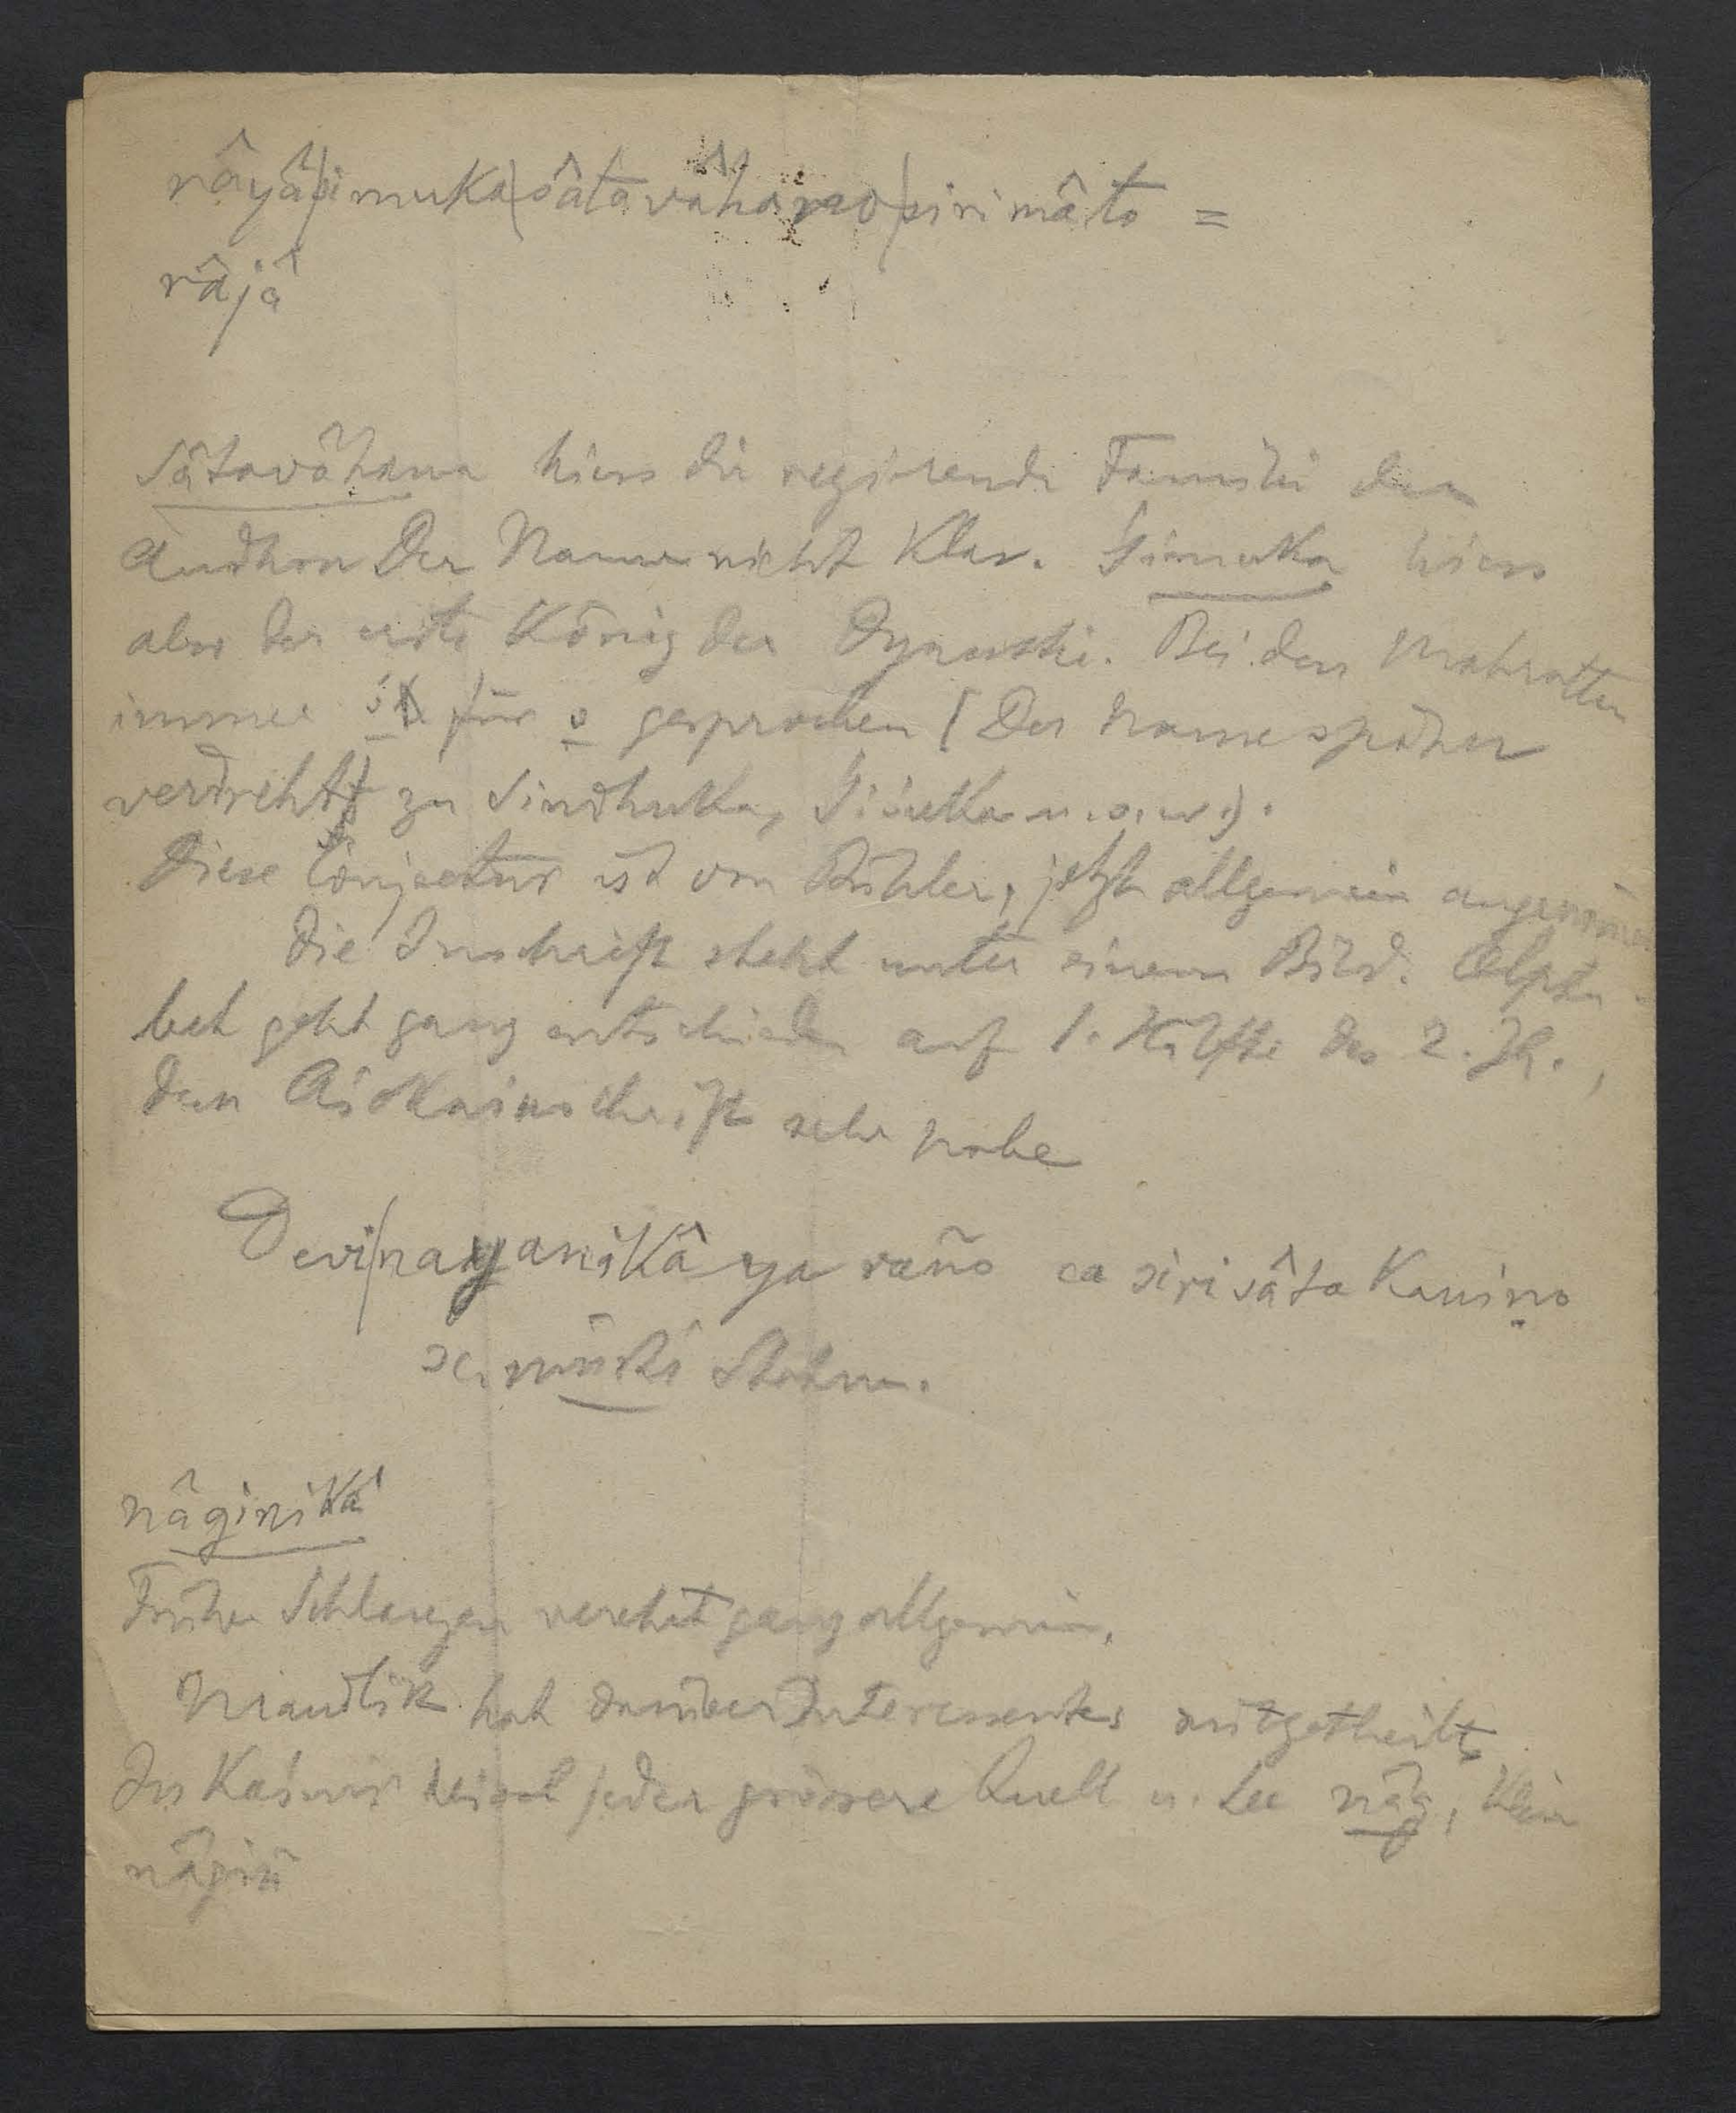 râyâ|simuka|sâtavâhano|sirimâto =
râjâ
Sâtavâhana hiess die regierende Familie der
Andhra Der Name nicht klar. Simuka hiess
aber der erste König der Dynastie. Bei den Mahratten
immer ś für s gesprochen (Der Name später
verdreht zu Sindhuka, Śiśuka u. s. w.).
Diese Conjectur ist von Bühler, jetzt allgemein angenommen
Die Inschrift steht unter einem Bild. Alpha-
bet geht ganz entschieden auf 1. Hälfte des 2. Jh.,
den Aśokainschrift sehr nahe
Devi|nayanikâya raño ca siri sâta Kanino
sc. Statue.
nâginikâ
Früher Schlangen verehrt ganz allgemein.
Mandlik hat darüber Interessantes mitgetheilt.
In Kaśmir heisst jeder grössere Quell u. See nâg, klein
nâgin